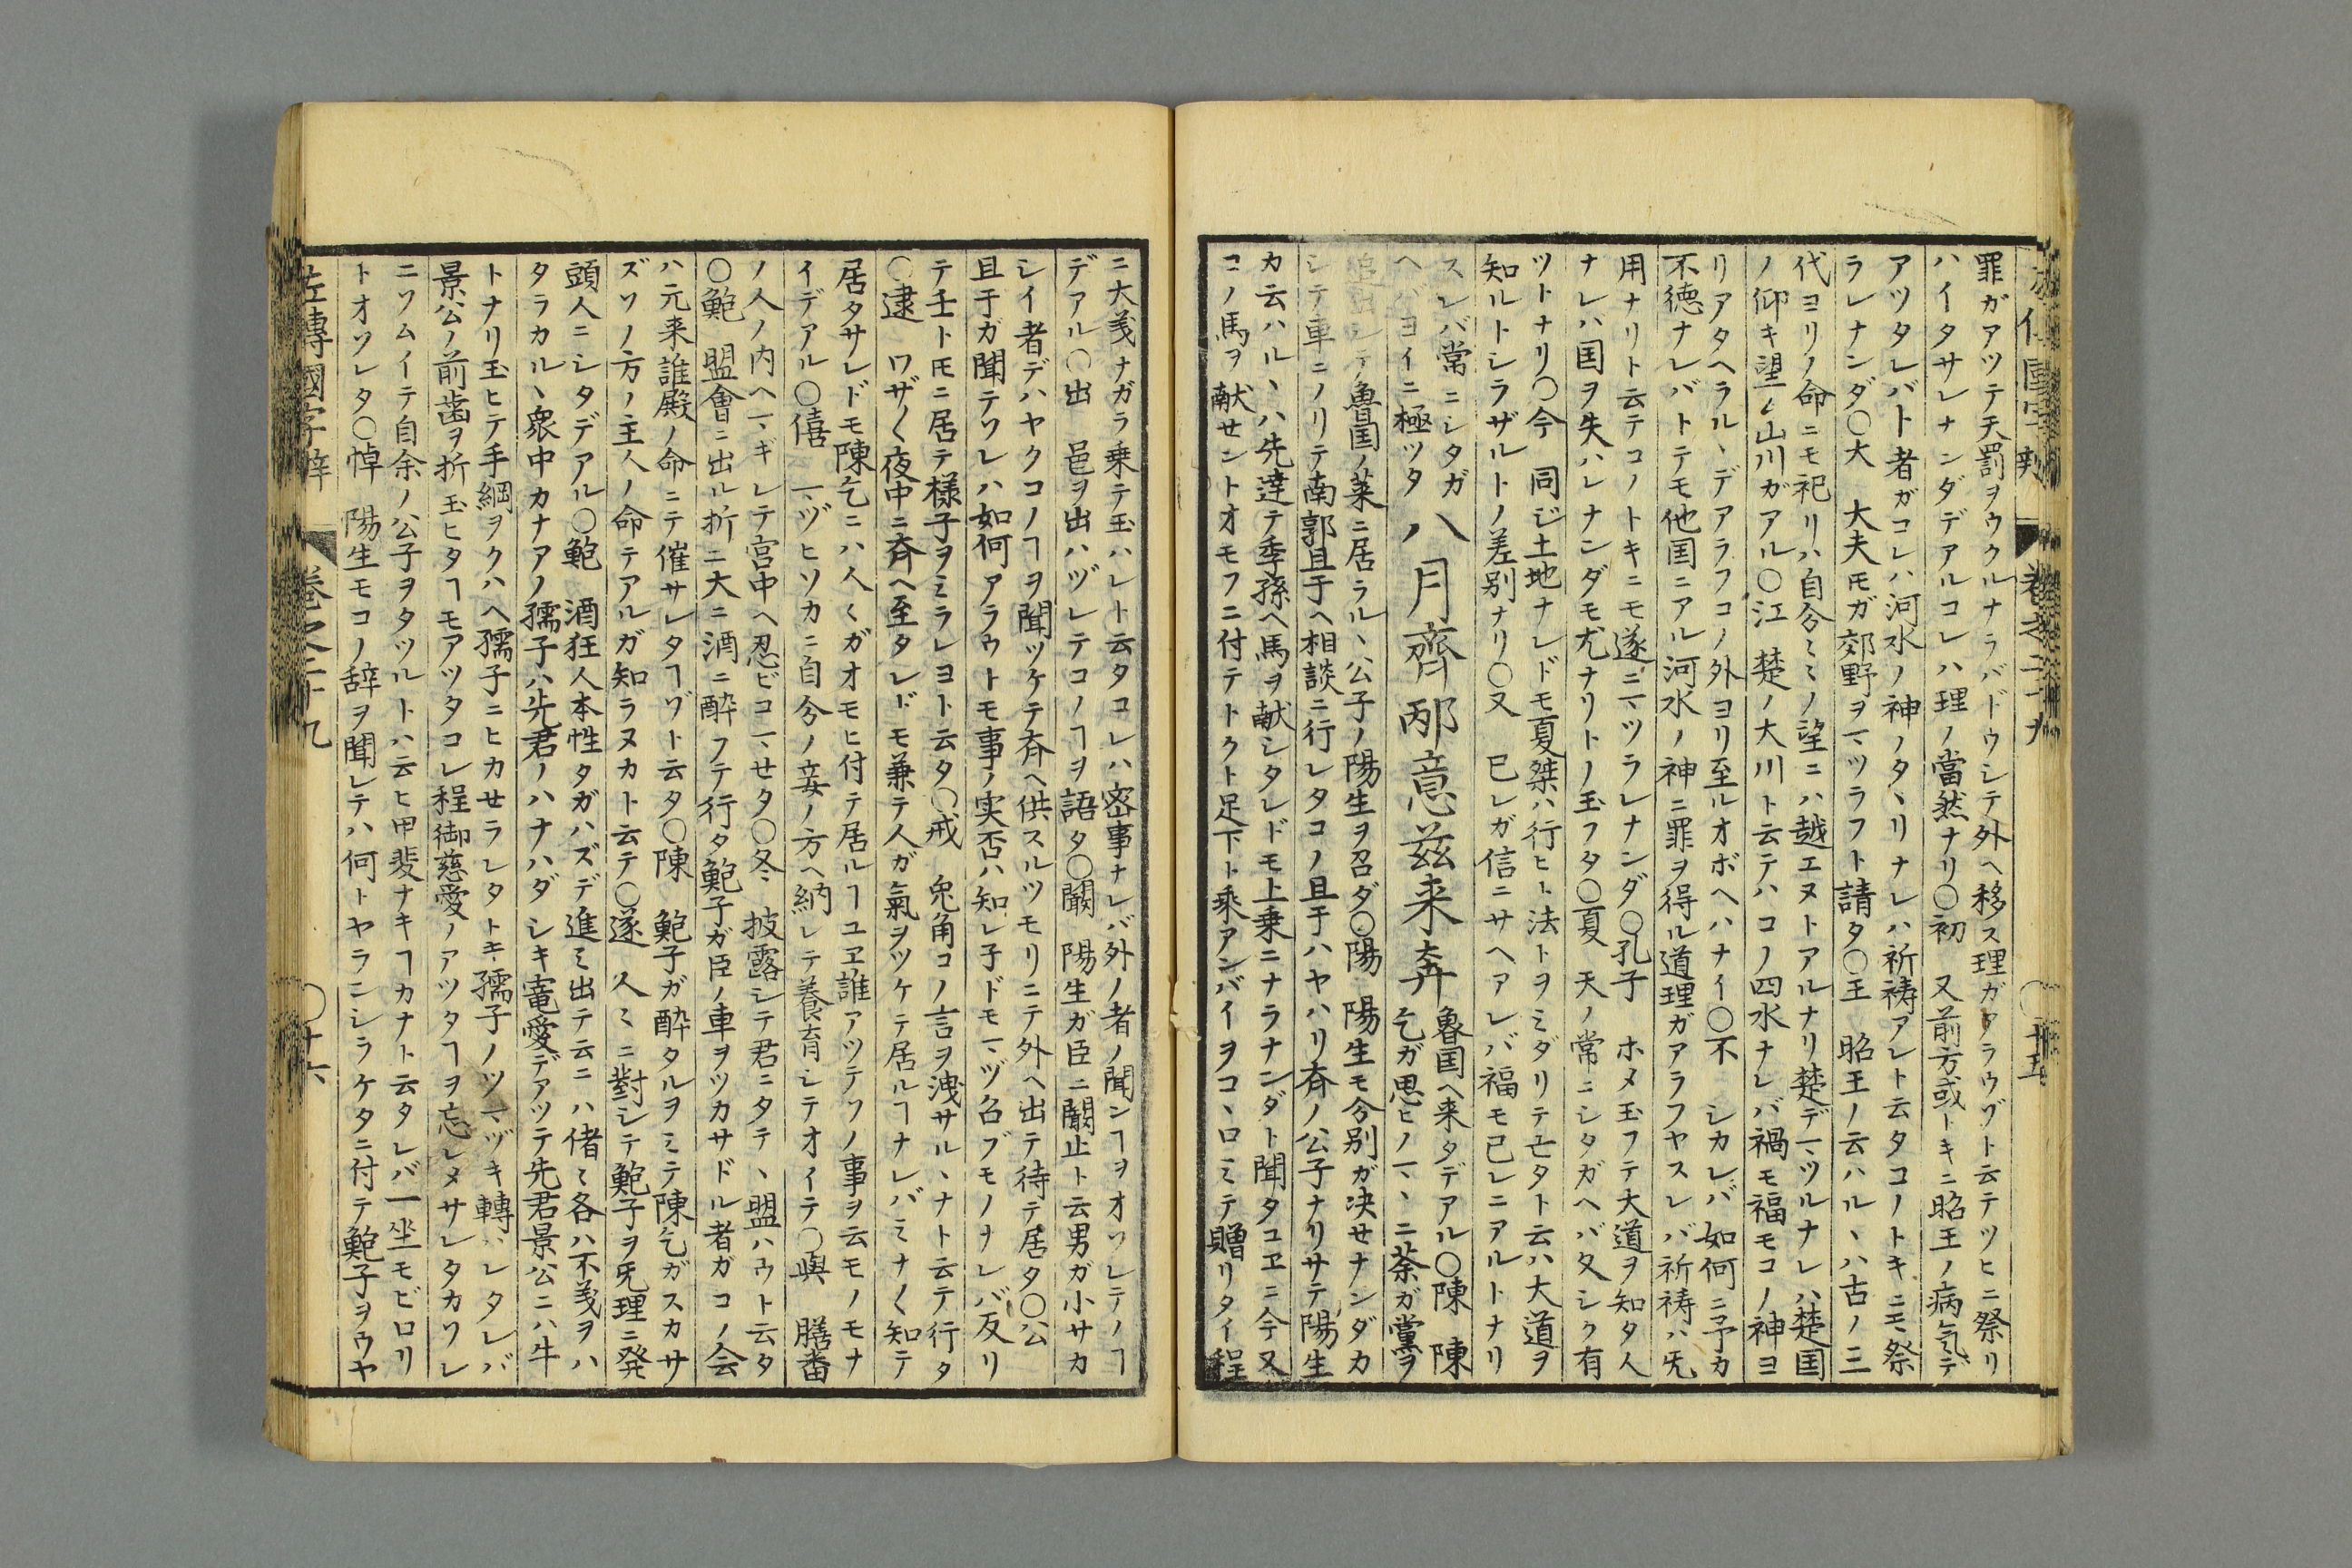 罪ガアツテ天罰ヲウクルナラバドウシテ外ヘ移ス理ガアラウゾト云テツヒニ祭リ
ハイタサレナンダデアルコレハ理ノ當然ナリ〇初　又前方或トキニ昭王ノ病気デ
アツタレバト者ガコレハ河水ノ神ノタヽリナレハ祈祷アレト云タコノトキニモ祭
ラレナンダ〇大　大夫㞮ガ郊野ヲマツラフト請タ〇王　昭王ノ云ハルヽハ古ノ三
代ヨリノ命ニモ祀リハ自分〻〻ノ望ニハ越エヌトアルナリ楚デマツルナレハ楚国
ノ仰キ望ム山川ガアル〇江　楚ノ大川ト云テハコノ四水ナレバ禍モ福モコノ神ヨ
リアタヘラルヽデアラフコノ外ヨリ至ルオボヘハナイ〇不　シカレバ如何ニ予カ
不徳ナレバトテモ他国ニアル河水ノ神ニ罪ヲ得ル道理ガアラフヤスレバ祈祷ハ旡
用ナリト云テコノトキニモ遂ニマツラレナンダ〇孔子　ホメ玉フテ大道ヲ知タ人
ナレハ国ヲ失ハレナンダモ尤ナリトノ玉フタ〇夏　天ノ常ニシタガヘバ久シク有
ツトナリ〇今　同ジ土地ナレドモ夏桀ハ行ヒト法トヲミダリテ亡タト云ハ大道ヲ
知ルトシラザルトノ差別ナリ〇又　已レガ信ニサヘアレバ福モ已レニアルトナリ
スレバ常ニシタガ
ヘバヨイニ極ツタ
八月齊邴意茲来奔
魯国ヘ来タデアル〇陳　陳
乞ガ思ヒノマヽニ荼ガ黨ヲ
追出シテ魯国ノ莱ニ居ラルヽ公子ノ陽生ヲ召ダ〇陽　陽生モ分別ガ决セナンダカ
シテ車ニノリテ南郭且于ヘ相談ニ行レタコノ且于ハヤハリ斉ノ公子ナリサテ陽生
カ云ハルヽハ先達テ季孫ヘ馬ヲ献シタレドモ上乗ニナラナンダト聞タコヱニ今又
コノ馬ヲ献セントオモフニ付テトクト足下ト乗アンバイヲコヽロミテ贈リタイ程
ニ大義ナガラ乗テ玉ハレト云タコレハ密事ナレバ外ノ者ノ聞ンヿヲオソレテノヿ
デアル〇出　邑ヲ出ハヅレテコノヿヲ語タ〇闞　陽生ガ臣ニ闞止ト云男ガ小サカ
シイ者デハヤクコノヿヲ聞ツケテ斉ヘ供スルツモリニテ外ヘ出テ待テ居タ〇公
且于ガ聞テソレハ如何アラウトモ事ノ実否ハ知レ子ドモマヅ召ブモノナレバ反リ
テ壬ト㞮ニ居テ様子ヲミラレヨト云タ〇戒　兎角コノ言ヲ洩サルヽナト云テ行タ
〇逮　ワザ〱夜中ニ斉ヘ至タレドモ兼テ人ガ氣ヲツケテ居ルヿナレバミナ〱知テ
居タサレドモ陳乞ニハ人〱ガオモヒ付テ居ルヿユヱ誰アツテソノ事ヲ云モノモナ
イデアル〇僖　マヅヒソカニ自分ノ妾ノ方ヘ納レテ養育シテオイテ〇與　膳番
ノ人ノ内ヘマギレテ宮中ヘ忍ビコマセタ〇冬　披露シテ君ニタテヽ盟ハウト云タ
〇鮑　盟會ニ出ル折ニ大ニ酒ニ酔フテ行タ鮑子ガ臣ノ車ヲツカサドル者ガコノ会
ハ元来誰殿ノ命ニテ催サレタヿゾト云タ〇陳　鮑子ガ酔タルヲミテ陳乞ガスカサ
ズソノ方ノ主人ノ命テアルガ知ラヌカト云テ〇遂　人〻ニ對シテ鮑子ヲ旡理ニ発
頭人ニシタデアル〇鮑　酒狂人本性タガハズデ進ミ出テ云ニハ偖〻各ハ不義ヲハ
タラカルヽ衆中カナアノ孺子ハ先君ノハナハダシキ寵愛デアツテ先君景公ニハ牛
トナリ玉ヒテ手綱ヲクハヘ孺子ニヒカセラレタトキ孺子ノツマヅキ轉バレタレバ
景公ノ前歯ヲ折玉ヒタヿモアツタコレ程御慈愛ノアツタヿヲ忘レメサレタカソレ
ニソムイテ自余ノ公子ヲタツルトハ云ヒ甲斐ナキヿカナト云タレバ一坐モビロリ
トオソレタ〇悼　陽生モコノ辞ヲ聞レテハ何トヤランシラケタニ付テ鮑子ヲウヤ
左傳國字辯　卷之二十九　〇十六